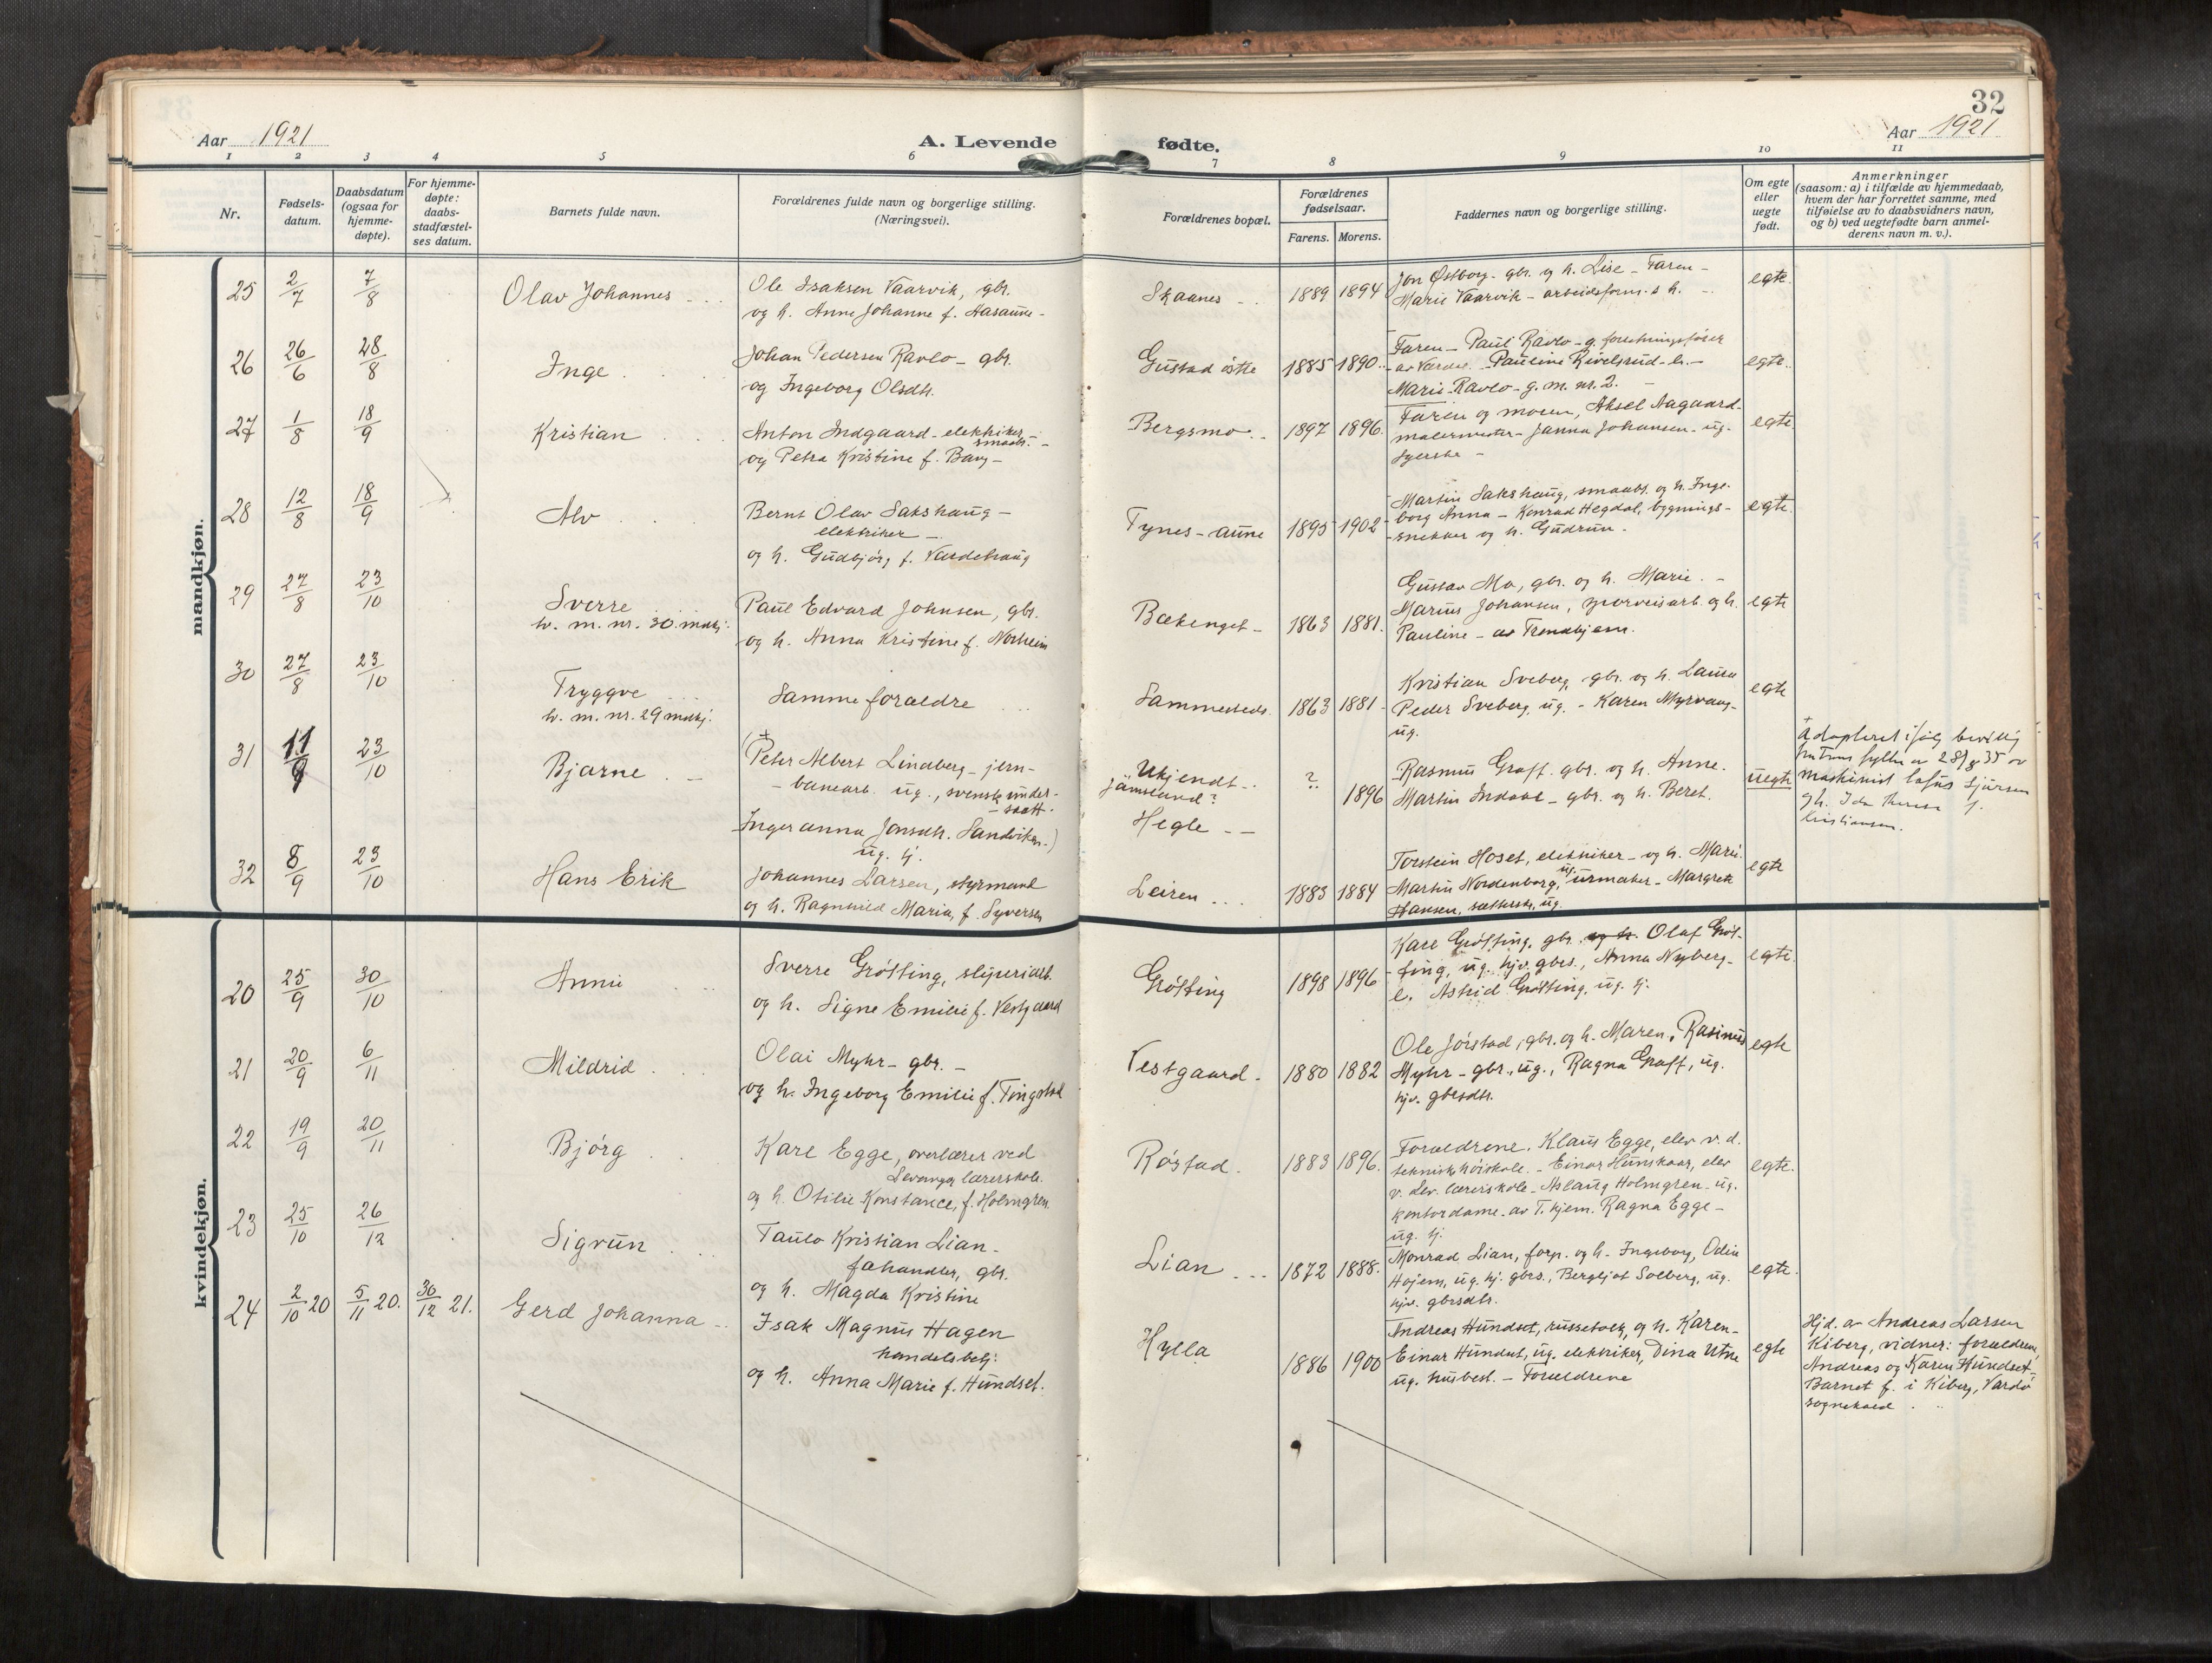 32
Aar 1921
A. Levende
fødte.
Aar 1921
1 2 3 4 5 6 7 8 9 10 11
Nr.
Fødsels-
datum.
Daabsdatum
(ogsaa for
hjemme-
døpte).
For hjemme-
døpte:
daabs-
stadfæstel-
ses datum.
Barnets fulde navn.
Forældrenes fulde navn og borgerlige stilling.
(Næringsvei).
Forældrenes bopæl.
Forældrenes
fødselsaar.
Farens. Morens.
Faddernes navn og borgerlige stilling.
Om egte
eller
uegte
født.
Anmerkninger
(saasom: a) i tilfælde av hjemmedaab,
hvem der har forrettet samme, med
tilføielse av to daabsvidners navn,
og b) ved uegtefødte barn anmel-
derens navn m. v.).
mandkjøn.
25 2/7 7/8 Olav Johannes
Ole Isaksen Vaarvik, gbr.
og h. Anne Johanne f. Aasaune
Skaanes 1889 1894
Jon Østborg gbr. og h. Lise - Faren -
Marie Vaarvik - arbeidsform. s h.
egte.
26 26/6 28/8 Inge
Johan Pedersen Ravlo - gbr.
og Ingeborg Olsdtr.
Gustad østre 1885 1890
Faren - Paul Ravlo - g. forretningsfører
av Værdal - Pauline Kivelsrud - e. -
Marie Ravlo - g. m. nr. 2.
egte.
27 1/8 18/9 Kristian
Anton Indgaard - elektriker
smaabr. -
og Petra Kristine f. Bang -
Bergsmo 1897 1896.
Faren og moren, Aksel Aagaard -
malermester - Janna Johansen - ug.
syerske -
egte.
28 12/8 18/9 Alv
Bernt Olav Sakshaug -
elektriker -
og h. Gudbjørg f. Vardehaug
Tynes-aune 1895 1902
Martin Sakshaug, smaabr. og h. Inge-
borg Anna - Konrad Hegdal, bygnings-
snekker og h. Gudrun.
egte.
29 27/8 23/10 Sverre
tv. m. nr. 30. mkj.
Paul Edvard Johnsen, gbr.
og h. Anna Kristine f. Norheim
Bækenget - 1863 1881.
Gustav Mo, gbr. og h. Marie. -
Marius Johansen, sporveisarb. og h.
Pauline - av Trondhjem.
egte
30 27/8 23/10 Tryggve
tv. m. nr. 29 mkj.
Samme forældre
Sammesteds 1863 1881
Kristian Sveberg, gbr. og h. Laura
Peder Sveberg, ug. - Karen Myrvang -
ug.
egte
31 11/9 23/10 Bjarne
(Peter Albert Lindberg - jern-
banearb. ug., svensk under-
saatt.
Inger anna Jonsdtr. Sandviken.)
ug. tj.
Ukjendt
Jämtland?
Hegle
? 1896
Rasmus Graft. gbr. og h. Anne.
Martin Indahl - gbr. og h. Beret.
uegte
Adopteret ifølg bevillg
28/8 35 av
maskinist
og h. Ida
Kristiansen.
32 8/9 23/10 Hans Erik
Johannes Larsen, styrmand
og h. Ragnhild Maria, f. Syversen
Leiren 1883 1884
Torstein Hoset, elektriker - og h. Marie.
Martin Nordenborg, ug. urmaker - Margrete
Hansen, sætterske, ug.
egte
kvindekjøn.
20 25/9 30/10 Annie
Sverre Grøtting, sliperiarb.
og h. Signe Emilie f. Vestgaard
Grøtting 1898 1896
Kare Grøtting, gbr. og h. Olaf Grøt-
ting, ug. hjv. gbrs., Anna Nyberg -
e. Astrid Grøtting, ug. tj.
egte.
21 20/9 6/11 Mildrid
Olai Myhr - gbr. -
og h. Ingeborg Emilie f. Tingstad
Vestgaard 1880 1882
Ole Jørstad, gbr. og h. Maren, Rasmus
Myhr - gbr., ug., Ragna Graft, ug.
hjv. gbrsdtr.
egte
22 19/9 20/11 Bjørg
Kare Egge, overlærer ved
Levanger lærerskole.
og h. Otilie Konstance, f. Holmgren
Røstad 1883 1896.
Forældrene. Klaus Egge, elev v. d.
tekniske høiskole - Einar Hunskaar, elev
v. Lev. lærerskole - Aslaug Holmgren - ug.
kontordame. av T. hjem. Ragna Egge -
ug. tj.
egte.
23 25/10 26/12 Sigrun
Taulo Kristian Lian -
fæhandler, gbr.
og h. Magda Kristine
Lian 1872 1888.
Monrad Lian, forp. og h. Ingeborg, Odin
Hojem, ug. hj. gbrs., Bergljot Solberg, ug.
hjv. gbrsdtr.
egte.
24 2/10 20 5/11 20. 30/12 21. Gerd Johanna
Isak Magnus Hagen
handelsbetj.
og h. Anna Marie f. Hundset.
Hylla 1886 1900
Andreas Hundset, og h. Karen -
Einar Hundset, ug. elektriker, Dina Utne
ug. husbest. - Forældrene
egte
Hjd. av Andreas Larsen
Kiberg, vidner: forældrene,
Andreas og Karen Hundset
Barnet f. i Kiberg, Vardø
sognekald